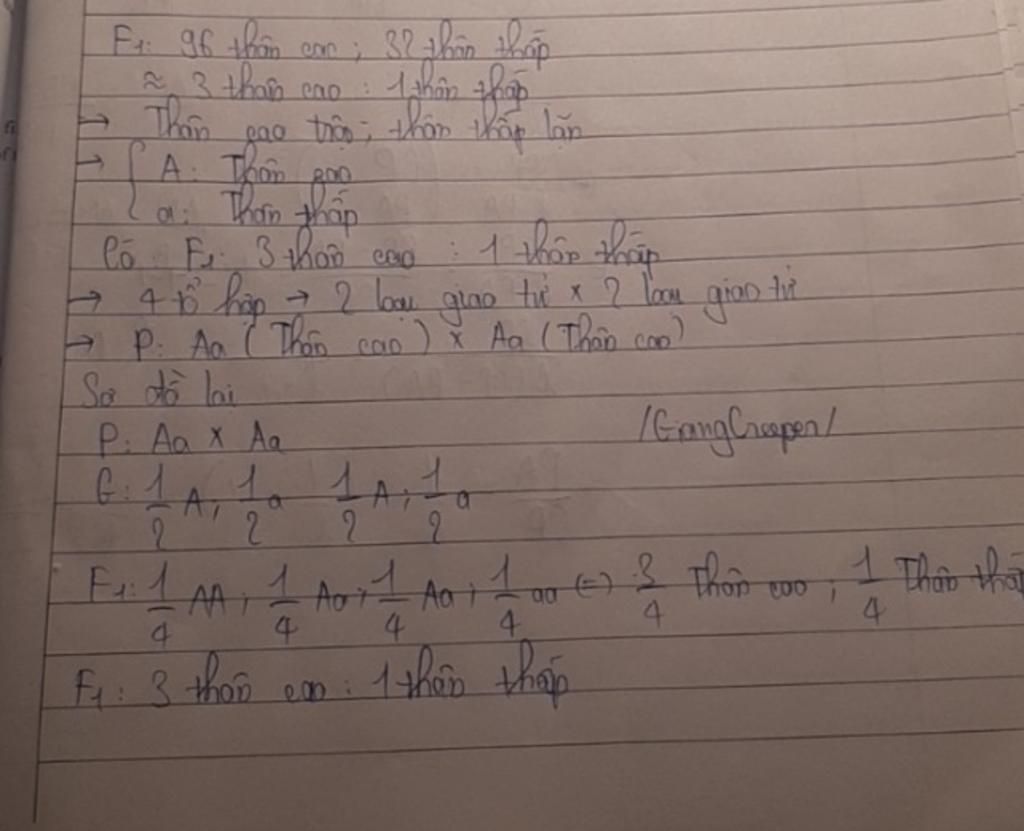 F₁: 96 thân cao; 32 thân thấp
≈ 3 thân cao : 1 thân thấp
→ Thân cao trội; thân thấp lặn
→ { A: Thân cao
a: Thân thấp
Có F₁: 3 thân cao : 1 thân thấp
→ 4 tổ hợp → 2 loại giao tử × 2 loại giao tử
→ P: Aa (Thân cao) × Aa (Thân cao)
Sơ đồ lai
P: Aa × Aa /GiangCreeper/
G: 1/2 A; 1/2 a 1/2 A; 1/2 a
F₁: 1/4 AA; 1/4 Aa; 1/4 Aa; 1/4 aa (=) 3/4 Thân cao; 1/4 Thân thấ
F₁: 3 thân cao : 1 thân thấp